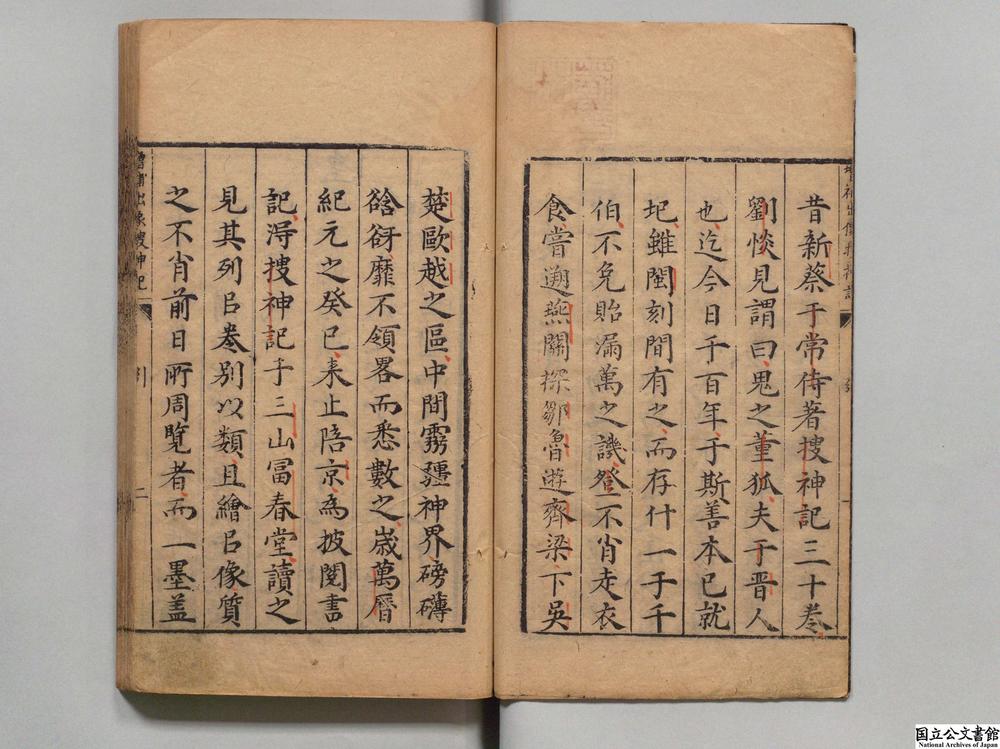 昔新蔡于常侍著搜神記三十卷
劉惔見謂曰鬼之董狐夫于晋人
也迄今日千百年于斯善本已就
圮雖閩刻間有之而存什一于千
伯不免貽漏萬之譏登不肖走衣
食嘗遡燕關探鄒魯遊齊梁下吳
楚歐越之區中間霧疆神界磅礴
谽谺靡不領畧而悉數之歲萬曆
紀元之癸巳来止陪京為披閱書
記淂搜神記于三山冨春堂讀之
見其列㠯卷别以類且繪㠯像質
之不肖前日所周覽者而一墨盖
出象搜神記
引
二
国立公文書館
National Archives of Japan